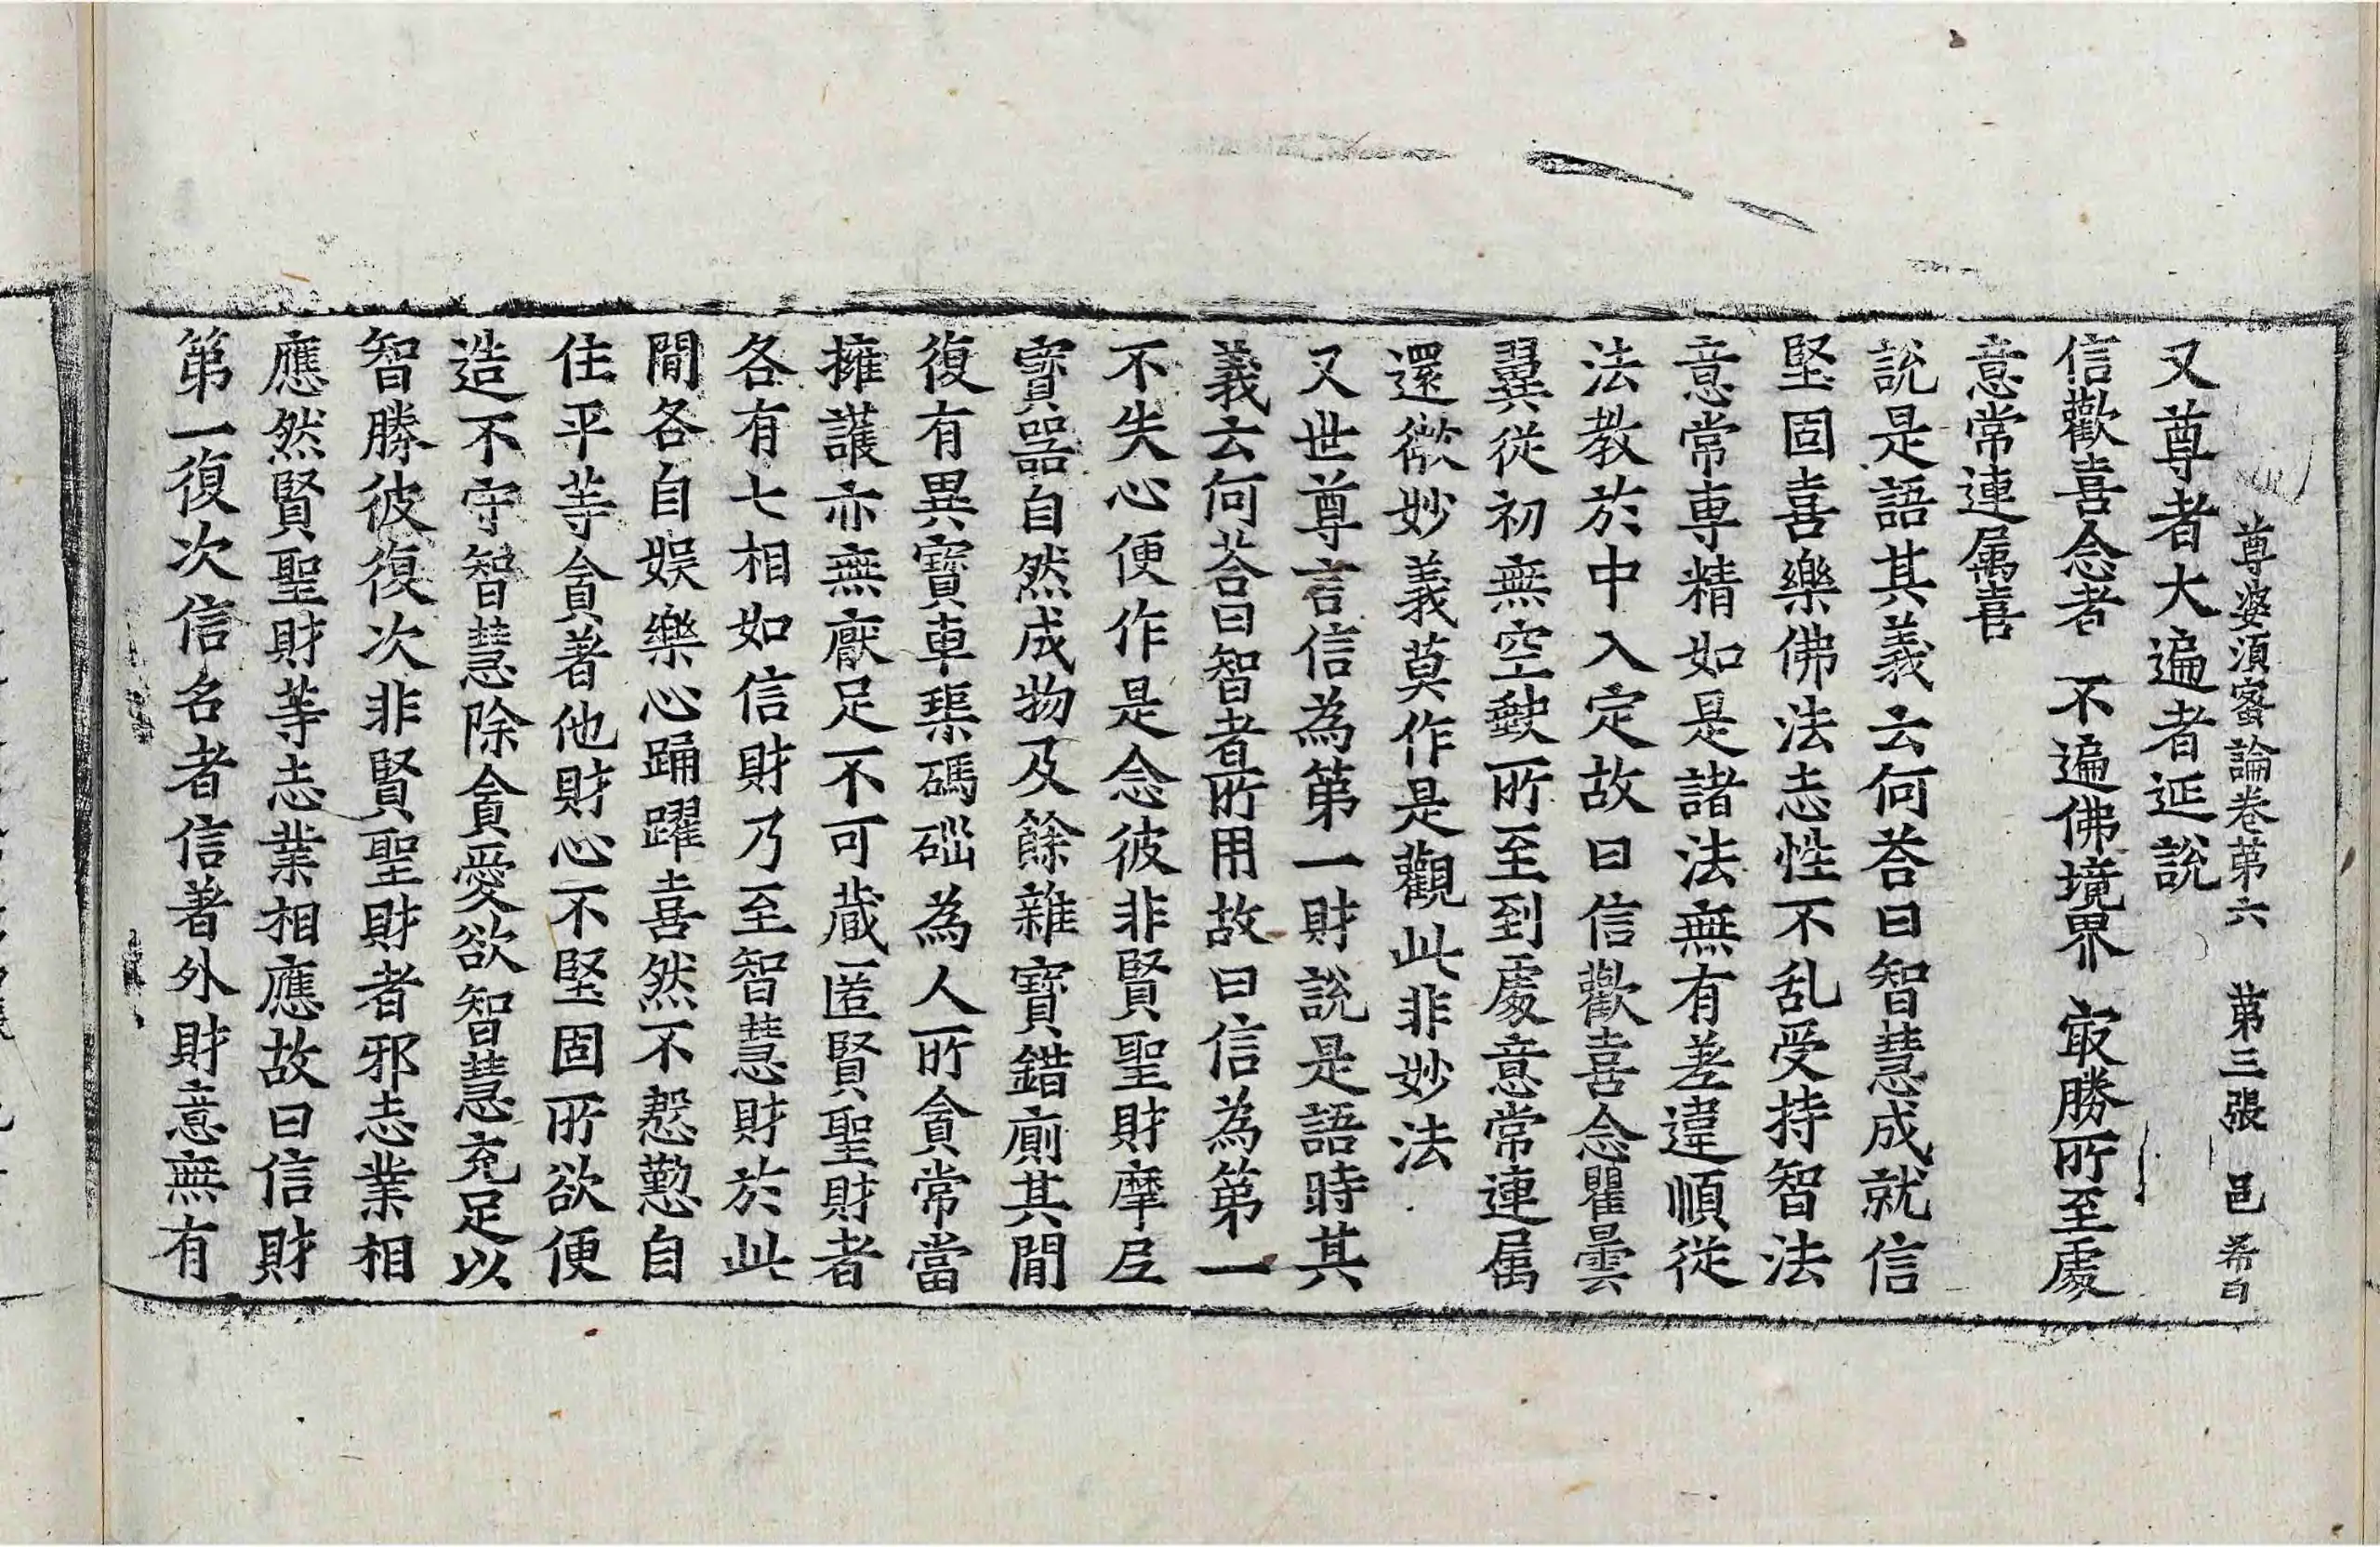 尊婆須蜜論卷苐六 苐三張 邑 希白
又尊者大遍者延說
信歡喜念者 不遍佛境界 㝡勝所至處
意常連属喜
說是語其義云何荅曰智慧成就信
堅固喜樂佛法志性不乱受持智法
意常専精如是諸法無有差違順從
法教於中入定故曰信歡喜念瞿曇
翼從初無空缺所至到處意常連属
還欲妙義莫作是觀此非妙法
又世尊言信為第一財說是語時其
義云何荅曰智者所用故曰信為第一
不失心便作是念彼非賢聖財摩尼
寳器自然成物及餘雜寶錯廁其閒
復有異寶車𤦲碼碯為人所貪常當
擁護亦無厭足不可蔵匿賢聖財者
各有七相如信財乃至智慧財於此
閒各自娱樂心踊躍喜然不慇懃自
住平等貪著他財心不堅固所欲便
造不守智慧除貪愛欲智慧充足以
智勝彼復次非賢聖財者邪志業相
應然賢聖財等志業相應故曰信財
第一復次信名者信著外財意無有